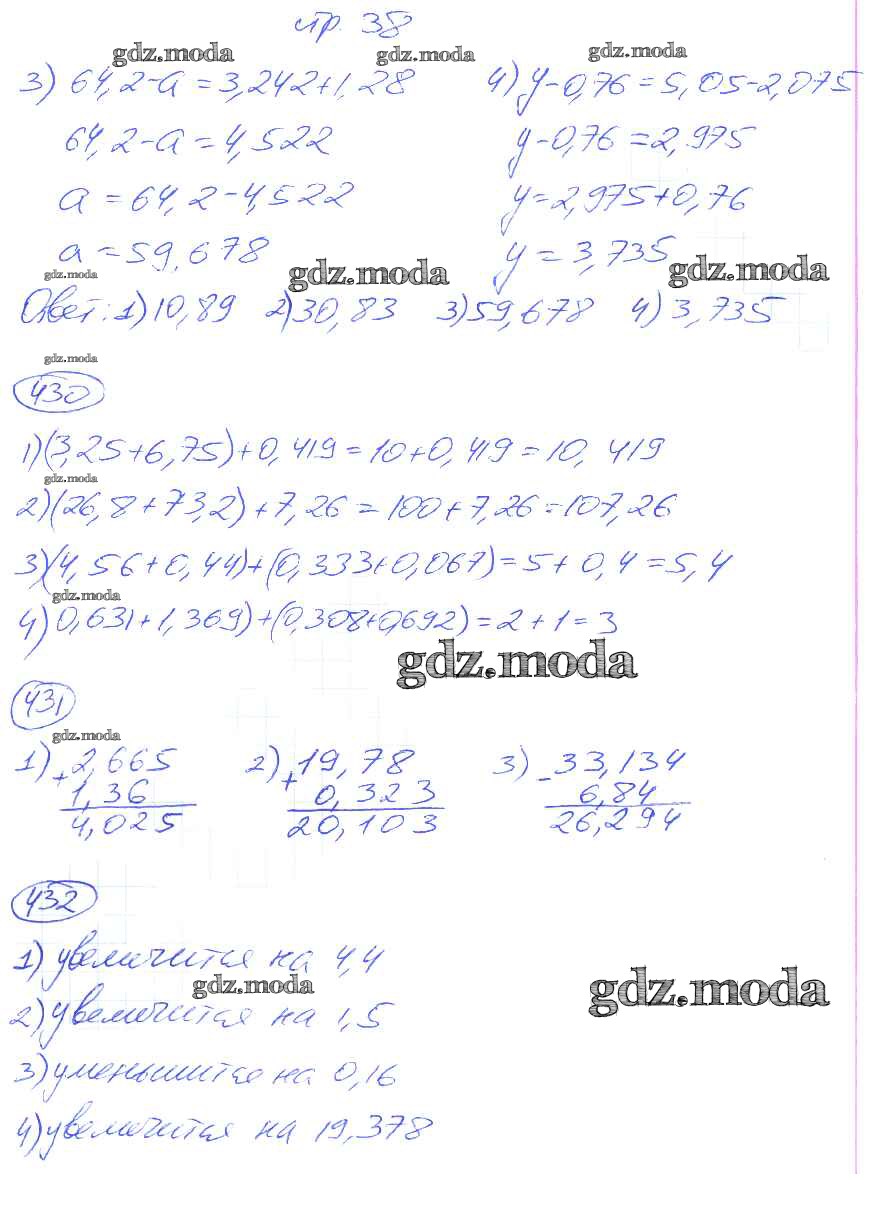 стр. 38
gdz.moda gdz.moda gdz.moda
3) 64,2-a=3,242+1,28 4) y-0,76=5,05-2,075
64,2-a=4,522 y-0,76=2,975
a=64,2-4,522 y=2,975+0,76
a=59,678 y=3,735
gdz.moda gdz.moda gdz.moda
Ответ: 1)10,89 2)30,83 3)59,678 4)3,735
gdz.moda
430
1)(3,25+6,75)+0,419=10+0,419=10,419
gdz.moda
2)(26,8+73,2)+7,26=100+7,26=107,26
3)(4,56+0,44)+(0,333+0,067)=5+0,4=5,4
gdz.moda
4)0,631+1,369)+(0,308+0,692)=2+1=3
gdz.moda
431
gdz.moda
1) +2,665 2) +19,78 3) -33,134
1,36 0,323 6,84
4,025 20,103 26,294
432
1) увеличится на 4,4
gdz.moda gdz.moda
2) увеличится на 1,5
3) уменьшится на 0,16
4) увеличится на 19,378